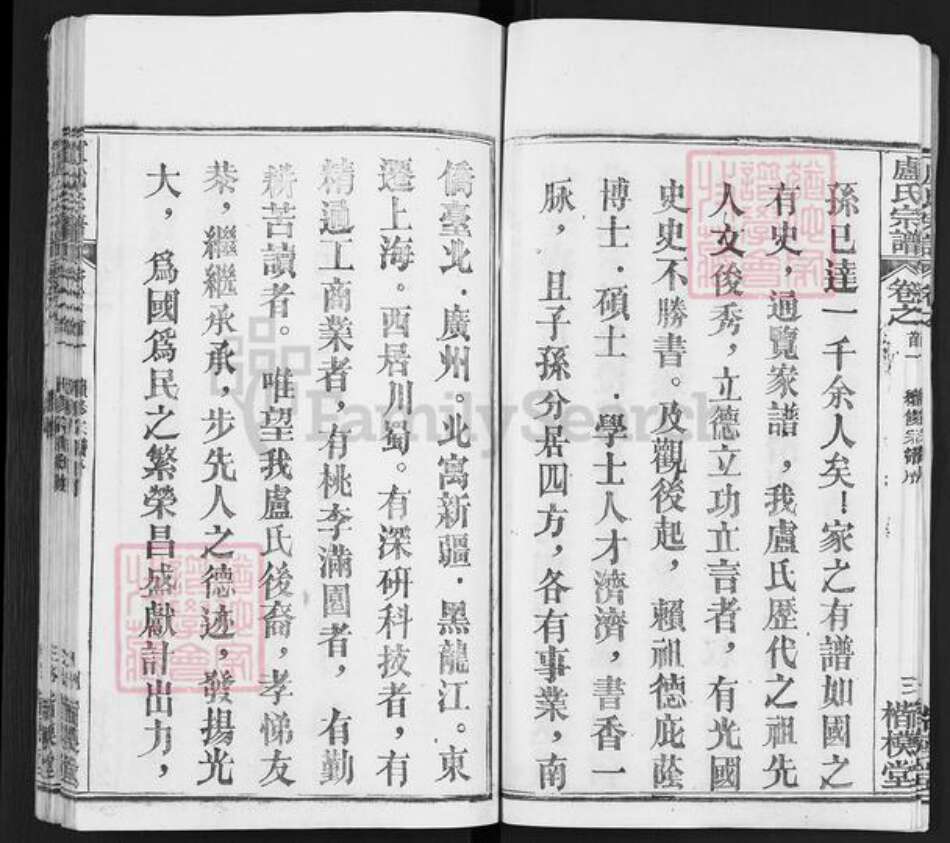 盧氏宗譜
卷之首一
續修宗譜序
三
楷模堂
孫已達一千余人矣！家之有譜如國之
有史，通覽家譜，我盧氏歷代之祖先
人文俊秀，立德立功立言者，有光國
史史不勝書。及觀後起，賴祖德庇蔭
博士．碩士．學士人才濟濟，書香一
脉，且子孫分居四方，各有事業，南
僑臺北．廣州。北寓新疆．黑龍江。東
遷上海。西居川蜀。有深研科技者，有
精通工商業者，有桃李滿園者，有勤
耕苦讀者。唯望我盧氏後裔，孝悌友
恭，繼繼承承，步先人之德迹，發揚光
大，爲國爲民之繁榮昌盛獻計出力，
FamilySearch